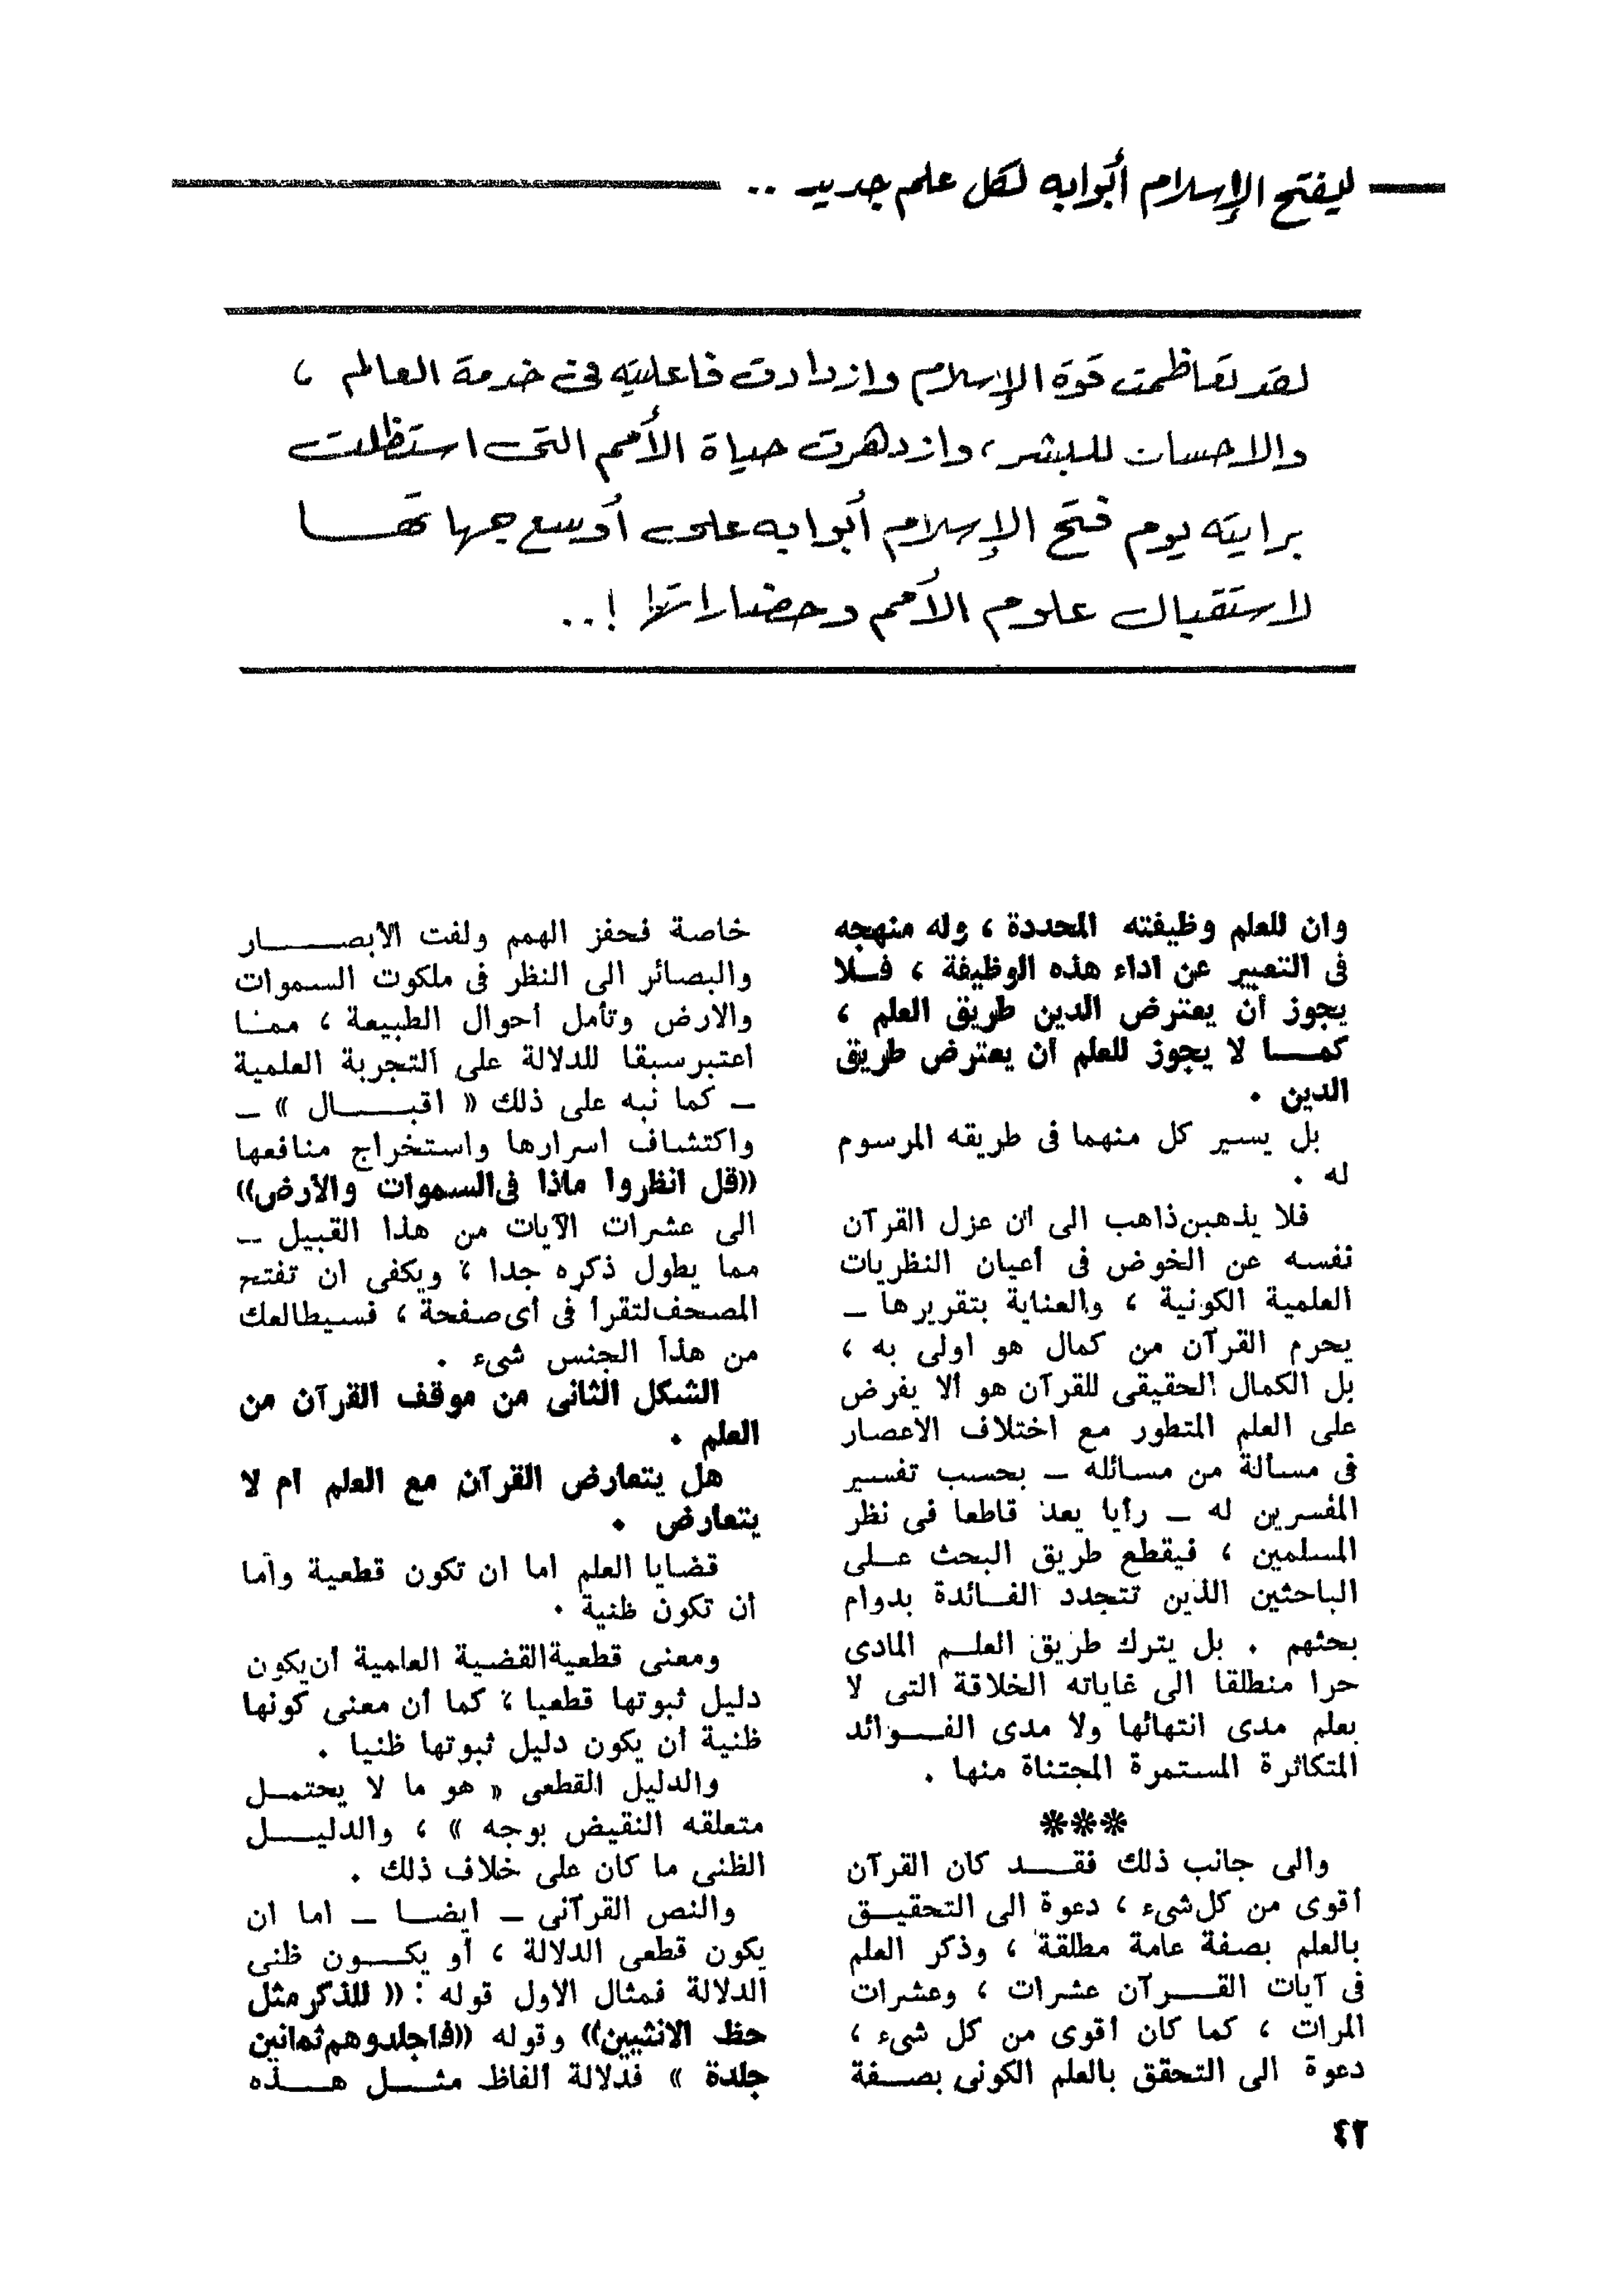 ليفتح الإسلام أبوابه لكل علم جديد ..
لقد تعاظمت قوة الإسلام وازدادت فاعليته فى خدمة العالم ،
والاحسان للبشر ، وازدهرت حياة الأمم التى استظلت
برايته يوم فتح الإسلام أبوابه على أوسع جهاتهـــا
لاستقبال علوم الأمم وحضاراتها ! ..
وان للعلم وظيفته المحددة ، وله منهجه
فى التعبير عن اداء هذه الوظيفة ، فــلا
يجوز أن يعترض الدين طريق العلم ،
كمـــا لا يجوز للعلم أن يعترض طريق
الدين .
بل يسير كل منهما فى طريقه المرسوم
له .
فلا يذهبن ذاهب الى ان عزل القرآن
نفسه عن الخوض فى أعيان النظريات
العلمية الكونية ، والعناية بتقريرها ـ
يحرم القرآن من كمال هو اولى به ،
بل الكمال الحقيقى للقرآن هو ألا يفرض
على العلم المتطور مع اختلاف الاعصار
فى مسألة من مسائله ـ بحسب تفسير
المفسرين له ـ رأيا يعد قاطعا فى نظر
المسلمين ، فيقطع طريق البحث عــلى
الباحثين الذين تتجدد الفــائدة بدوام
بحثهم . بل يترك طريق العلــم المادى
حرا منطلقا الى غاياته الخلاقة التى لا
يعلم مدى انتهائها ولا مدى الفـــوائد
المتكاثرة المستمرة المجتناة منها .
***
والى جانب ذلك فقـــد كان القرآن
أقوى من كل شىء ، دعوة الى التحقيــق
بالعلم بصفة عامة مطلقة ، وذكر العلم
فى آيات القـــرآن عشرات ، وعشرات
المرات ، كما كان أقوى من كل شىء ،
دعوة الى التحقق بالعلم الكونى بصــفة
خاصة فحفز الهمم ولفت الأبصـــــار
والبصائر الى النظر فى ملكوت السموات
والارض وتأمل أحوال الطبيعة ، ممــا
اعتبر سبقا للدلالة على التجربة العلمية
ـ كما نبه على ذلك « اقبـــــال » ـ
واكتشاف اسرارها واستخراج منافعها
((قل انظروا ماذا فى السموات والارض))
الى عشرات الآيات من هذا القبيل ـ
مما يطول ذكره جدا ، ويكفى ان تفتح
المصحف لتقرأ فى أى صفحة ، فسيطالعك
من هذا الجنس شىء .
الشكل الثانى من موقف القرآن من
العلم .
هل يتعارض القرآن مع العلم ام لا
يتعارض .
قضايا العلم اما ان تكون قطعية واما
أن تكون ظنية .
ومعنى قطعية القضية العلمية أن يكون
دليل ثبوتها قطعيا ، كما أن معنى كونها
ظنية أن يكون دليل ثبوتها ظنيا .
والدليل القطعى « هو ما لا يحتمــل
متعلقه النقيض بوجه » ، والدليـــل
الظنى ما كان على خلاف ذلك .
والنص القرآنى ـ ايضــا ـ اما ان
يكون قطعى الدلالة ، أو يكـــون ظنى
الدلالة فمثال الاول قوله : (( للذكر مثل
حظ الانثيين)) وقوله ((فاجلدوهم ثمانين
جلدة )) فدلالة ألفاظ مثـــل هـــذه
٤٢